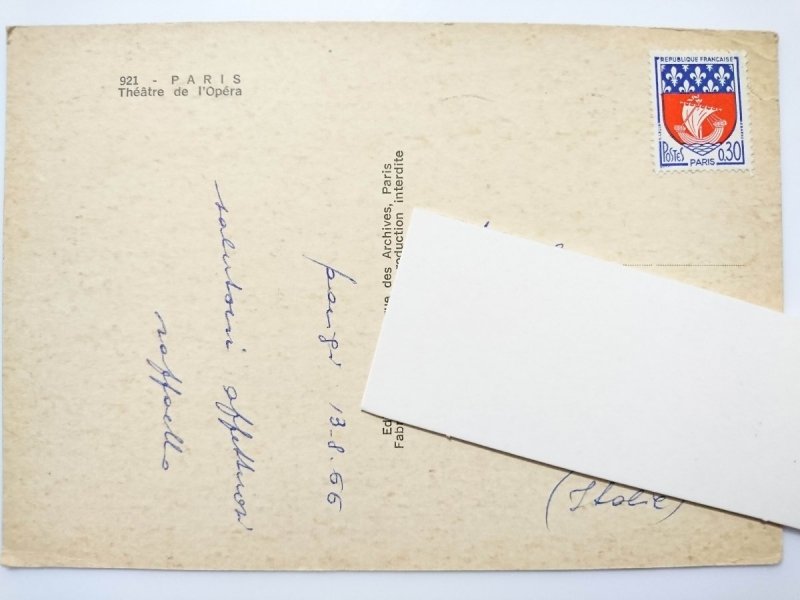 921 - PARIS
Théâtre de l'Opéra
REPUBLIQUE FRANÇAISE
POSTES
0,30
PARIS
des Archives, Paris
production interdite
Ed
Fab
parigi 13-8-66
salutoni affettuosi
raffaella
(Italie)